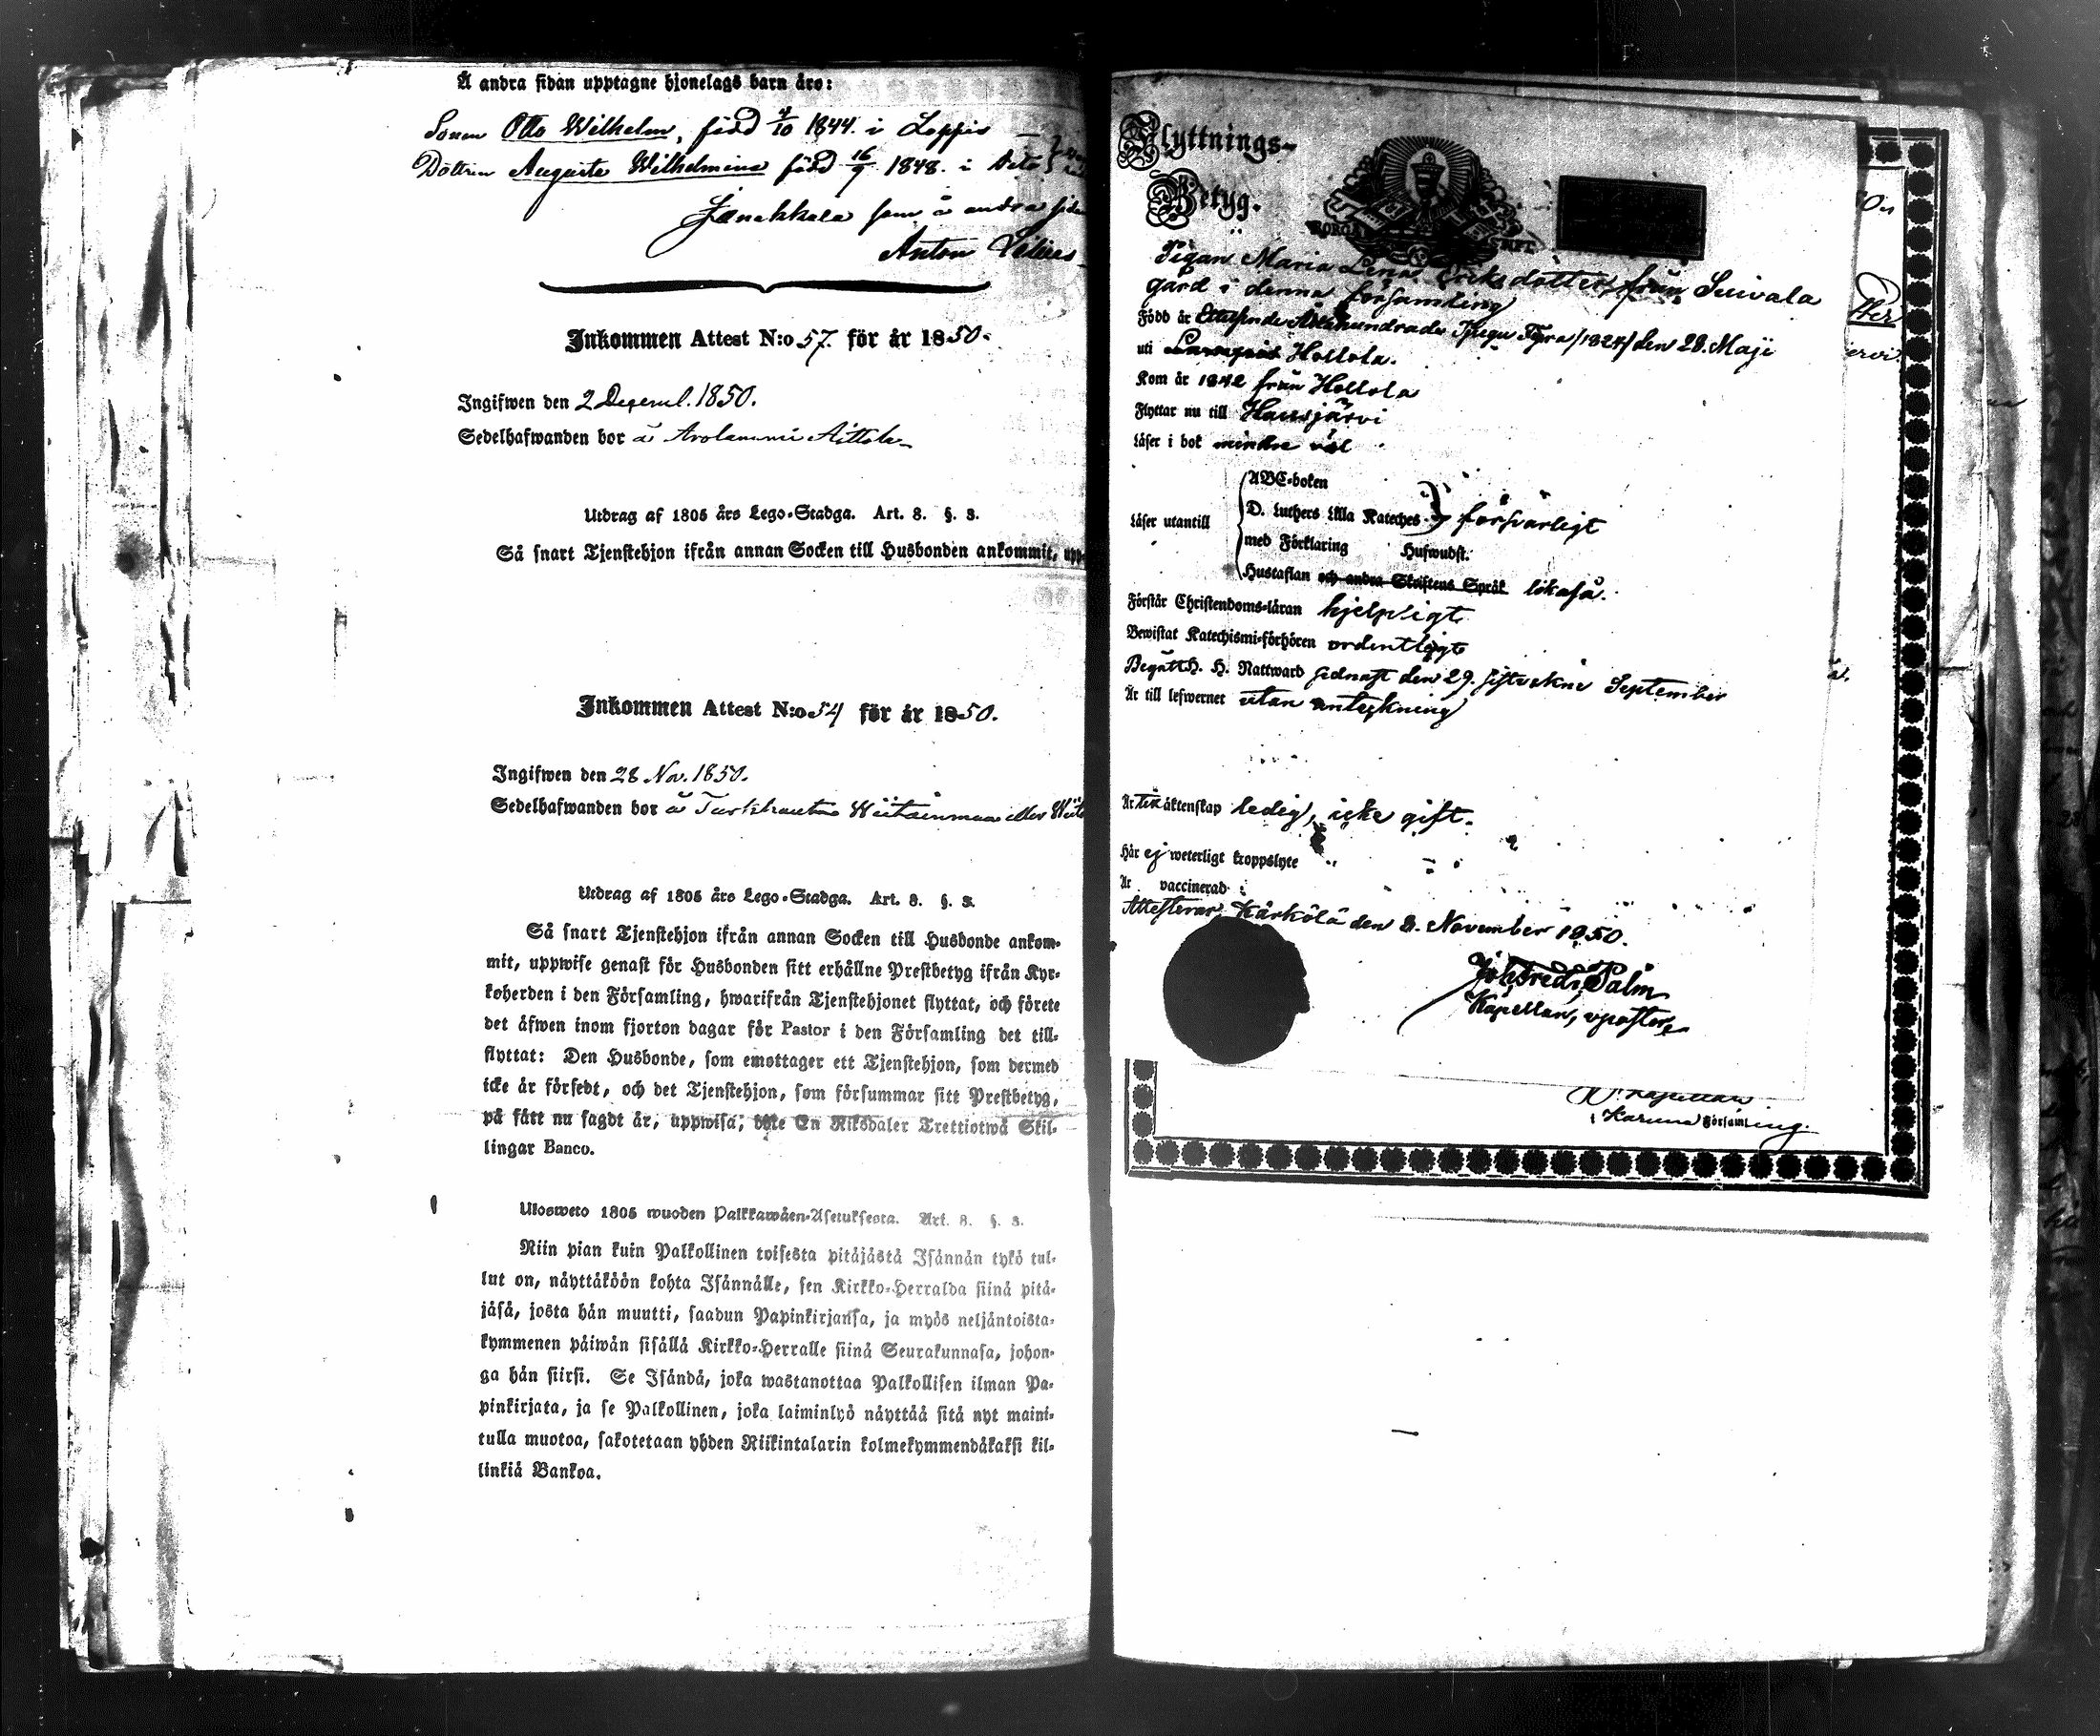 Å andra sidan upptagne hjonelags barn äro:
Sonen Otto Wilhelm, född 4/10 1844. i Loppis
Dottren Augusta Wilhelmina född 16/9 1848. i Dito
Janakkala som å andra sidan
Anton
Inkommen Attest N:o 57. för år 1850.
Ingifwen den 2 Decemb. 1850.
Sedelhafwanden bor å Arolammi Aittola
Utdrag af 1805 års Lego-Stadga. Art. 8. §. 3.
Så snart Tjenstehjon ifrån annan Socken till Husbonden ankommit, upp-
Inkommen Attest N:o 54 för år 1850.
Ingifwen den 28 Nov. 1850.
Sedelhafwanden bor å Turkhauta eller
Utdrag af 1805 års Lego-Stadga. Art. 8. §. 3.
Så snart Tjenstehjon ifrån annan Socken till Husbonde ankom-
mit, uppwise genast för Husbonden sitt erhållne Prestbetyg ifrån Kyr-
koherden i den Församling, hwarifrån Tjenstehjonet flyttat, och förete
det äfwen inom fjorton dagar för Pastor i den Församling det till-
flyttat: Den Husbonde, som emottager ett Tjenstehjon, som dermed
icke är försedt, och det Tjenstehjon, som försummar sitt Prestbetyg,
på sätt nu sagdt är, uppwisa, böte En Riksdaler Trettiotwå Skil-
lingar Banco.
Ulosweto 1805 wuoden Palkkawäen-Asetuksesta. Art. 8. §. 3.
Niin pian kuin Palkollinen toisesta pitäjästä Isännän tykö tul-
lut on, näyttäköön kohta Isännälle, sen Kirkko-Herralda siinä pitä-
jäsä, josta hän muutti, saadun Papinkirjansa, ja myös neljäntoista-
kymmenen päiwän sisällä Kirkko-Herralle siinä Seurakunnasa, johon-
ga hän siirsi. Se Isändä, joka wastanottaa Palkollisen ilman Pa-
pinkirjata, ja se Palkollinen, joka laiminlyö näyttää sitä nyt maini-
tulla muotoa, sakotetaan yhden Riikintalarin kolmekymmendäkaksi kil-
linkiä Bankoa.
Flyttnings-
Betyg.
Pigan Maria Lena Eriksdotter, från Suivala
gård i denna församling
Född år Ettusende Åttahundrade Tjugu Fyra /1824/ den 28. Maji
uti Hollola.
Kom år 1842 från Hollola
Flyttar nu till Hausjärvi
Läser i bok mindre väl
Läser utantill
ABC-boken
D. Luthers Lilla Kateches försvarligt
med Förklaring Hufwudst.
Hustaflan och andra Skriftens Språk likaså.
Förstår Christendoms-läran hjelpligt
Bewistat Katechismi-förhören ordentligt
Begått H. H. Nattward sednast den 29. sistvekne September
Är till lefwernet utan anteckning
Är till äktenskap ledig, icke gift.
Har ej weterligt kroppslyte
Är vaccinerad
Attesterar, Kärkölä den 8. November 1850.
Joh. Fredr. Palm
Kapellan, v pastor
Kapellan
i Karuna Församling.